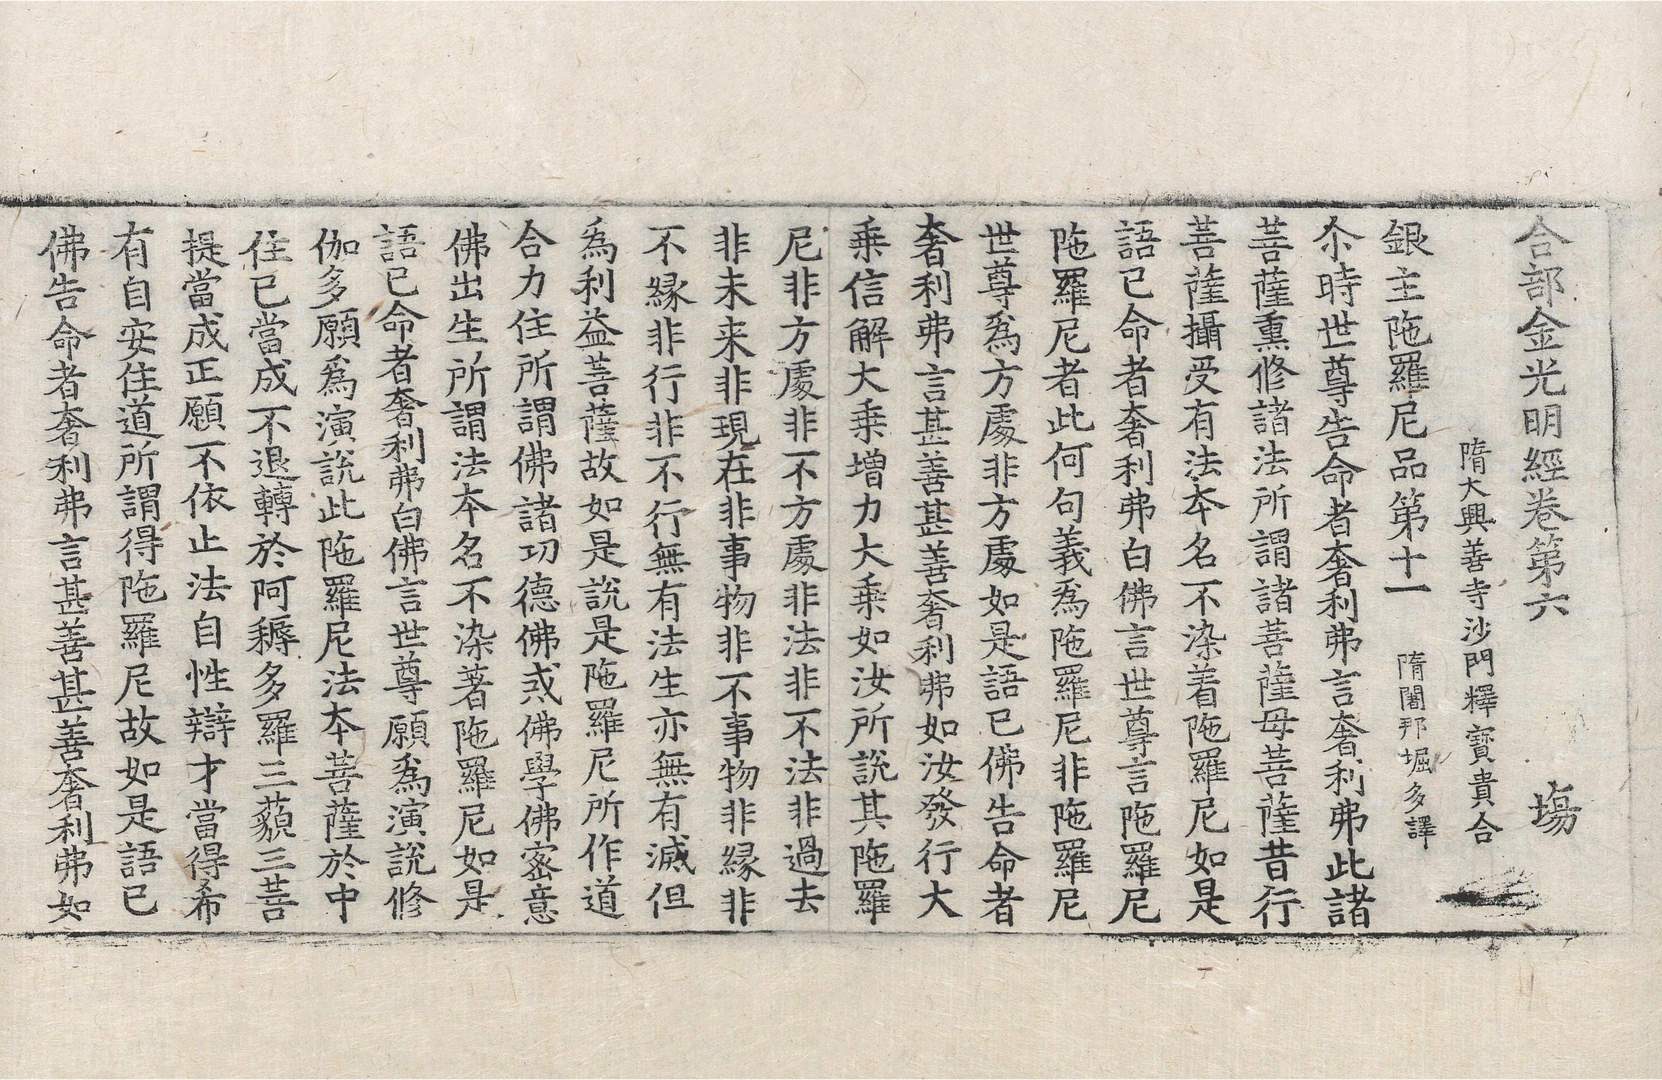 合部金光明經卷第六 塲
隋大興善寺沙門釋寶貴合
銀主陁羅尼品第十一 隋闍那堀多譯
尒時世尊告命者奢利弗言奢利弗此諸
菩薩熏修諸法所謂諸菩薩母菩薩昔行
菩薩攝受有法本名不染着陁羅尼如是
語已命者奢利弗白佛言世尊言陁羅尼
陁羅尼者此何句義為陁羅尼非陁羅尼
世尊為方處非方處如是語已佛告命者
奢利弗言甚善甚善奢利弗如汝發行大
乗信解大乗增力大乗如汝所說其陁羅
尼非方處非不方處非法非不法非過去
非未来非現在非事物非不事物非緣非
不緣非行非不行無有法生亦無有滅但
為利益菩薩故如是說是陁羅尼所作道
合力住所謂佛諸功德佛戒佛學佛宻意
佛出生所謂法本名不染著陁羅尼如是
語已命者奢利弗白佛言世尊願為演說修
伽多願為演說此陁羅尼法本菩薩於中
住已當成不退轉於阿耨多羅三藐三菩
提當成正願不依止法自性辯才當得希
有自安住道所謂得陁羅尼故如是語已
佛告命者奢利弗言甚善甚善奢利弗如